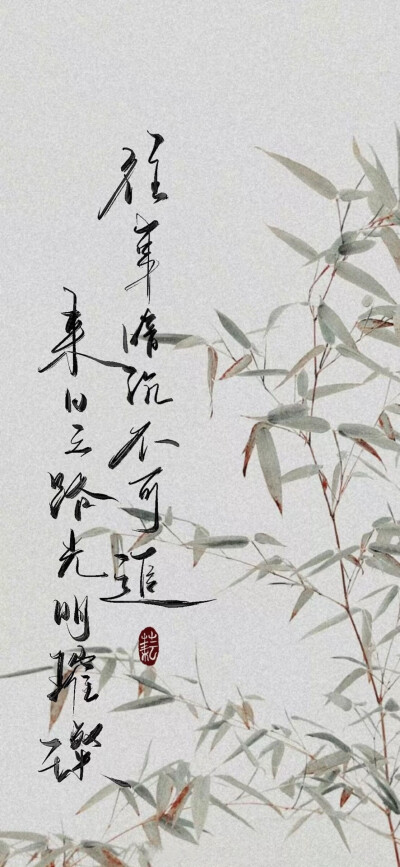 往事暗沉不可追
来日之路光明璀璨